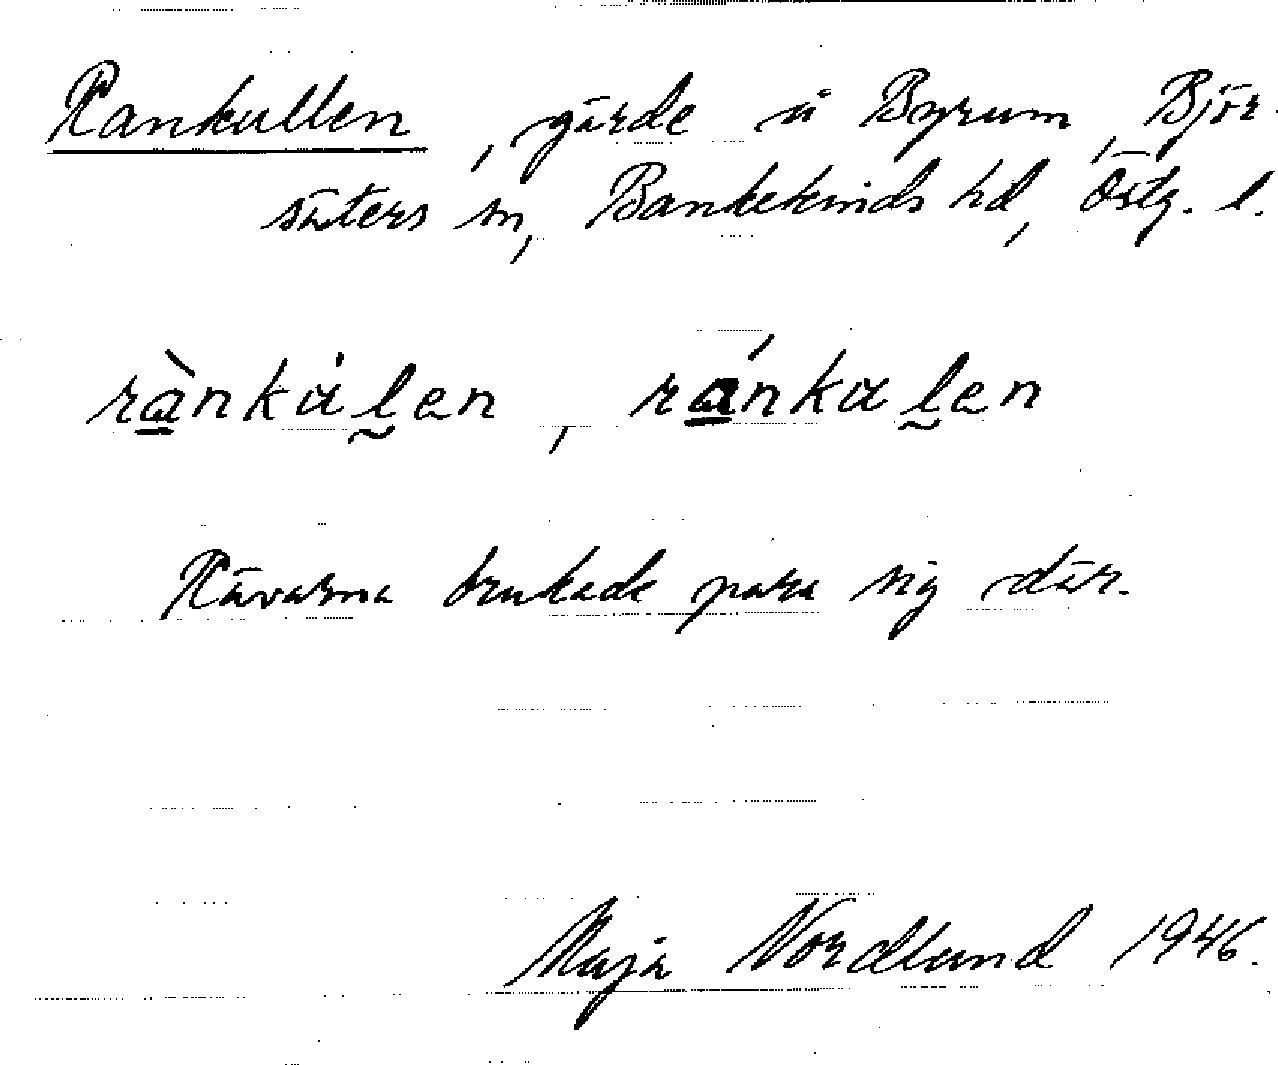 Rankullen, gärde å Byrum, Björ-
säters sn, Bankekinds hd, Östg. l.
rànkȧlen, ránkalen
Rävarna brukade para sig där.
Maja Nordlund 1946.